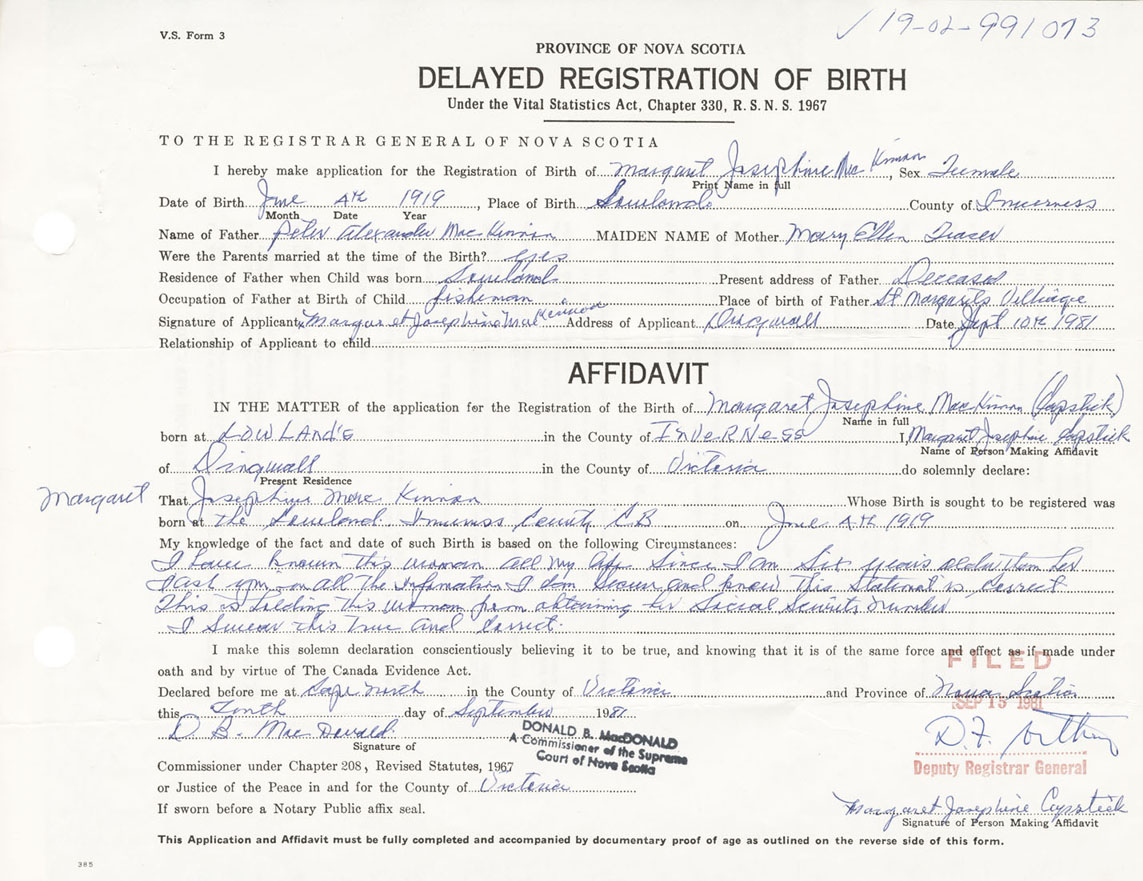 19-02-991073
V.S. Form 3
PROVINCE OF NOVA SCOTIA
DELAYED REGISTRATION OF BIRTH
Under the Vital Statistics Act, Chapter 330, R.S.N.S. 1967
TO THE REGISTRAR GENERAL OF NOVA SCOTIA
I hereby make application for the Registration of Birth of Margaret Josephine Mac Kinnon, Sex Female
Print Name in full
Date of Birth June 4th 1919, Place of Birth County of Inverness
Month Date Year
Name of Father Peter Alexander Mac Kinnon MAIDEN NAME of Mother Mary Ellen Fraser
Were the Parents married at the time of the Birth? yes
Residence of Father when Child was born Present address of Father Deceased
Occupation of Father at Birth of Child fisheman Place of birth of Father St Margarets Village
Signature of Applicant Margaret Josephine Mac Kinnon Address of Applicant Dingwall Date Sept 10th 1981
Relationship of Applicant to child
AFFIDAVIT
IN THE MATTER of the application for the Registration of the Birth of Margaret Josephine MacKinnon (Capstick)
Name in full
born at LOWLANDS in the County of INVERNESS I, Margaret Josephine Capstick
Name of Person Making Affidavit
of Dingwall in the County of Victoria do solemnly declare:
Present Residence
Margaret
That Josephine Mac Kinnon Whose Birth is sought to be registered was
born at the County C B on June 4th 1919
My knowledge of the fact and date of such Birth is based on the following Circumstances:
I have known this woman all my life since I am six years older than her
I ask you on all the Information I am and know this Statement is Correct
This is holding this woman from obtaining her Social Number
I swear this True and Correct.
I make this solemn declaration conscientiously believing it to be true, and knowing that it is of the same force and effect as if made under
oath and by virtue of The Canada Evidence Act.
FILED
Declared before me at Cape North in the County of Victoria and Province of Nova Scotia
SEP 15 1981
this Tenth day of September 1981
D. B. Mac Donald
Signature of
DONALD B. MacDONALD
A Commissioner of the Supreme
Court of Nova Scotia
D.F.
Deputy Registrar General
Commissioner under Chapter 208, Revised Statutes, 1967
or Justice of the Peace in and for the County of Victoria
Margaret Josephine Capstick
If sworn before a Notary Public affix seal.
Signature of Person Making Affidavit
This Application and Affidavit must be fully completed and accompanied by documentary proof of age as outlined on the reverse side of this form.
385